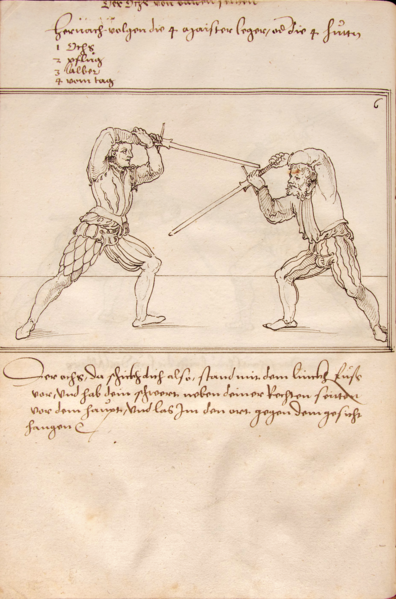 Der Ochs von
hernach volgen die 4 maister leger, od die 4 hutn
1 Ochs
2 pflug
3 alber
4 vom tag
6
Der ochs, da schickh dich also, stand mit dem linckh fuess
vor, vnd hab dein schwert neben deiner Rechten seitten
vor dem haupt, vnd las Im den ort gegen dem gesicht
hangen